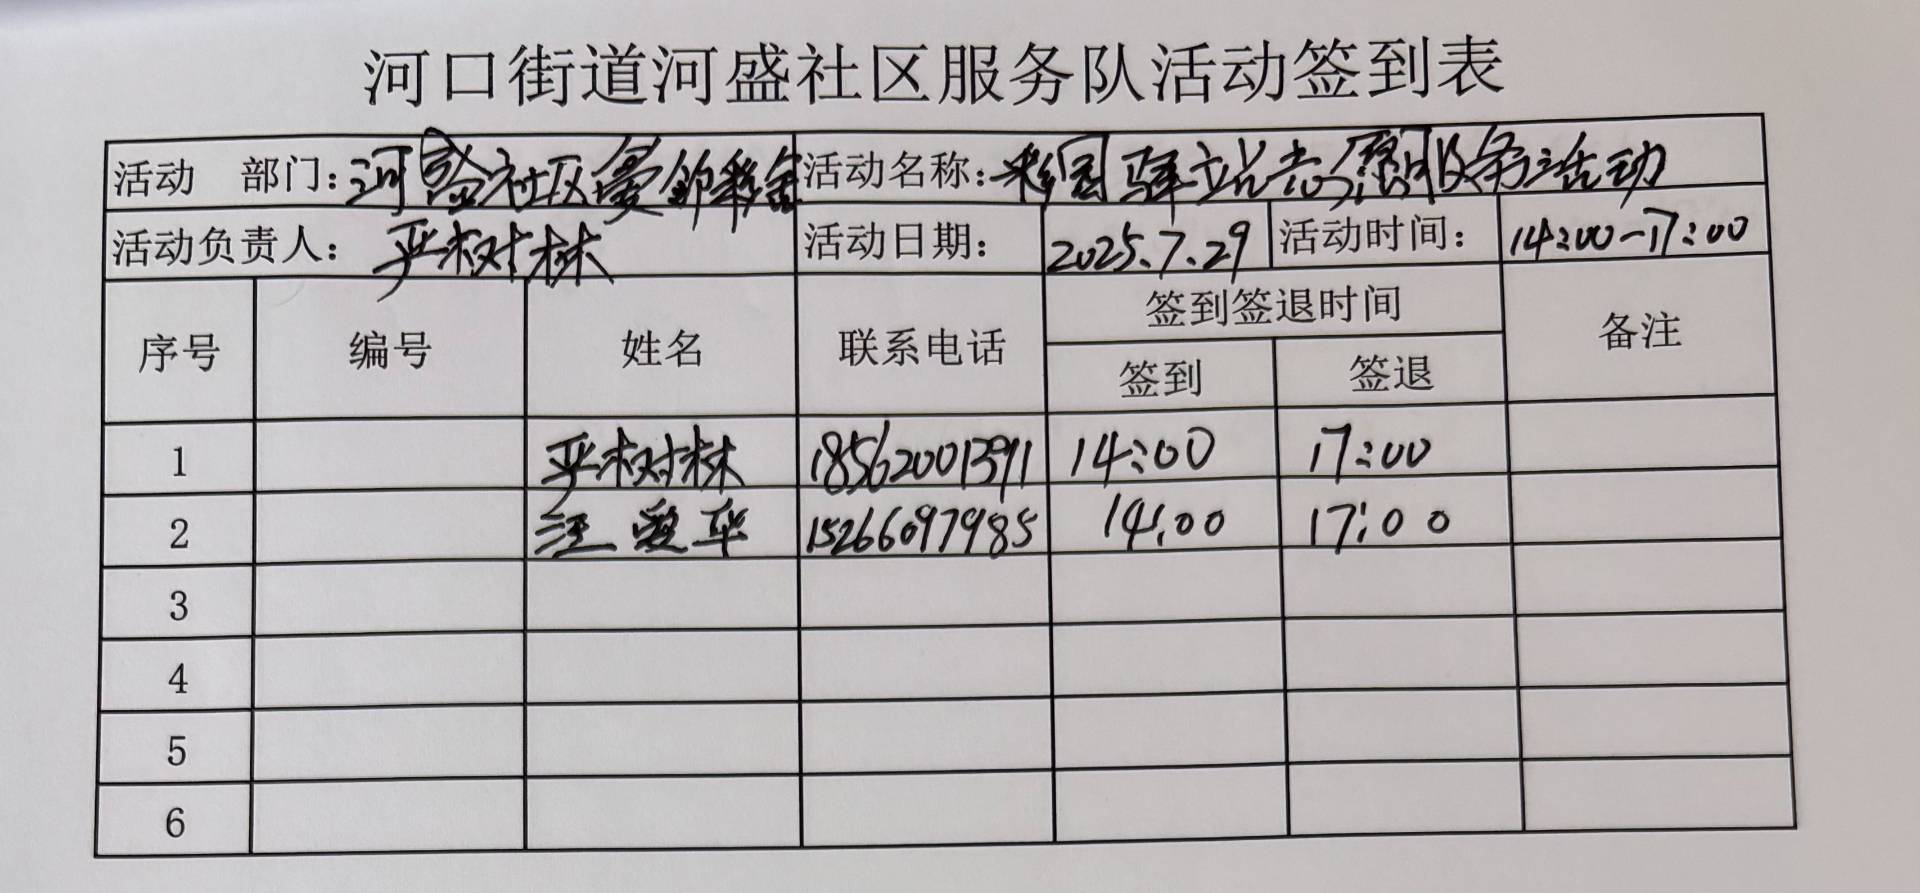 河口街道河盛社区服务队活动签到表
活动 部门：河盛社区 活动名称：彩园驿站志愿服务活动
活动负责人：严树林 活动日期：2025.7.29 活动时间：14:00-17:00
序号 编号 姓名 联系电话 签到签退时间 备注
签到 签退
1 严树林 18562001391 14:00 17:00
2 汪爱华 15266097985 14:00 17:00
3
4
5
6